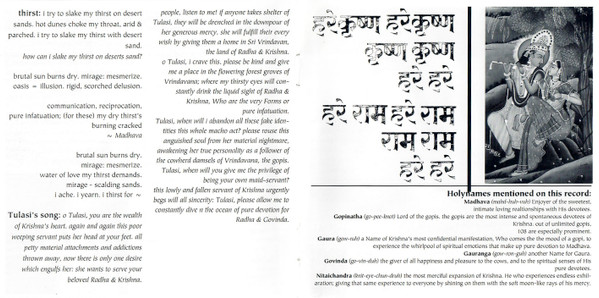 thirst: i try to slake my thirst on desert
sands. hot dunes choke my throat, arid &
parched. i try to slake my thirst with desert
sand.
how can i slake my thirst on deserts sand?
brutal sun burns dry. mirage: mesmerize.
oasis = illusion. rigid, scorched delusion.
communication, reciprocation,
pure infatuation; (for these) my dry thirst's
burning cracked
~ Madhava
brutal sun burns dry.
mirage: mesmerize.
water of love my thirst demands.
mirage - scalding sands.
i ache. i yearn. i thirst for ~
Tulasi's song: o Tulasi, you are the wealth
of Krishna's heart. again and again this poor
weeping servant puts her head at your feet. all
petty material attachments and addictions
thrown away, now there is only one desire
which engulfs her: she wants to serve your
beloved Radha & Krishna.
people, listen to me! if anyone takes shelter of
Tulasi, they will be drenched in the downpour of
her generous mercy. she will fulfill their every
wish by giving them a home in Sri Vrindavan,
the land of Radha & Krishna.
o Tulasi, i crave this. please be kind and give
me a place in the flowering forest groves of
Vrindavana; where my thirsty eyes will con-
stantly drink the liquid sight of Radha &
Krishna, Who are the very Forms or
pure infatuation.
Tulasi, when will i abandon all these fake iden-
tities this whole macho act? please reuse this
anguished soul from her material nightmare,
awakening her true personality as a follower of
the cowherd damsels of Vrindavana, the gopis.
Tulasi, when will you give me the privilege of
being your own maid-servant?
this lowly and fallen servant of Krishna urgently
begs will all sincerity: Tulasi, please allow me to
constantly dive n the ocean of pure devotion for
Radha & Govinda.
हरे कृष्ण हरे कृष्ण
कृष्ण कृष्ण
हरे हरे
हरे राम हरे राम
राम राम
हरे हरे
Holynames mentioned on this record:
Madhava (mahd-huh-vuh) Enjoyer of the sweetest,
intimate loving realtionships with His devotees.
Gopinatha (go-pee-knot) Lord of the gopis. the gopis are the most intense and spontaneous devotees of
Krishna. out of unlimited gopis,
108 are especially prominent.
Gaura (gow-ruh) a Name of Krishna's most confidential manifestation, Who comes the the mood of a gopi, to
experience the whirlpool of spiritual emotions that make up pure devotion to Madhava.
Gauranga (gow-ron-guh) another Name for Gaura.
Govinda (go-vin-duh) the giver of all happiness and pleasure to the cows, and to the spiritual senses of His
pure devotees.
Nitaichandra (knit-eye-chun-druh) the most merciful expansion of Krishna. He who experiences endless exhil-
aration; giving that same experience to everyone by shining on them with the soft moon-like rays of his mercy.